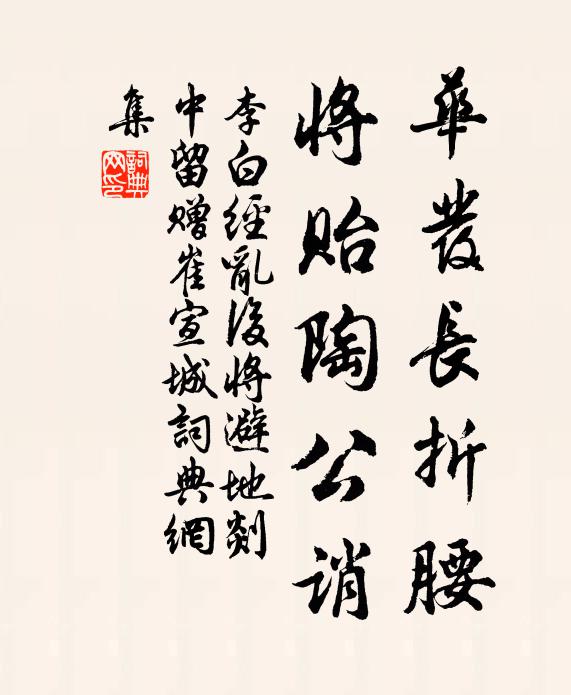 華發長折腰
將貽陶公誚
李白經亂後將避地剡
中留贈崔宣城詞典網
集
詞典網印